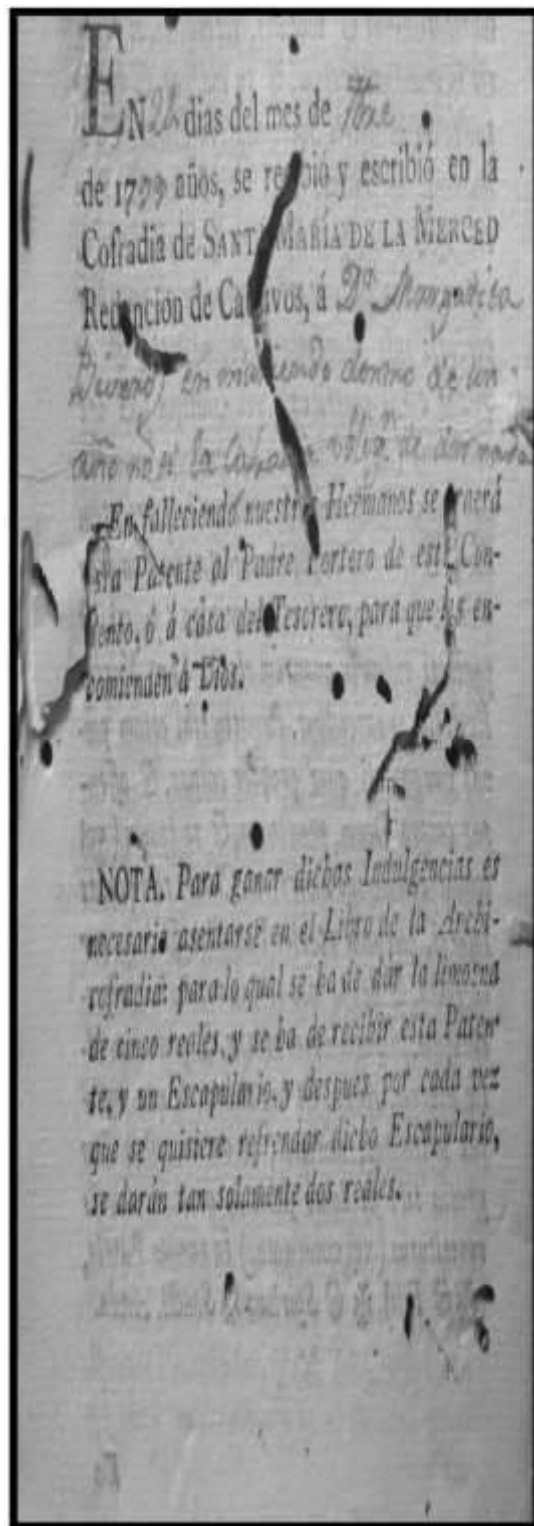 EN 22 dias del mes de
de 1799 años, se recibió y escribió en la
Cofradia de SANTA MARÍA DE LA MERCED
Redencion de Cautivos, á Dª Margarita
en muriendo dentro de un
año no
En falleciendo nuestros Hermanos se traerá
esta Patente al Padre Portero de este Con-
vento, ó á casa del Tesorero, para que les en-
comienden á Dios.
NOTA. Para ganar dichas Indulgencias es
necesario asentarse en el Libro de la Archi-
cofradia: para lo qual se ha de dár la limosna
de cinco reales, y se ha de recibir esta Paten-
te, y un Escapulario, y despues por cada vez
que se quisiere refrendar dicho Escapulario,
se darán tan solamente dos reales.